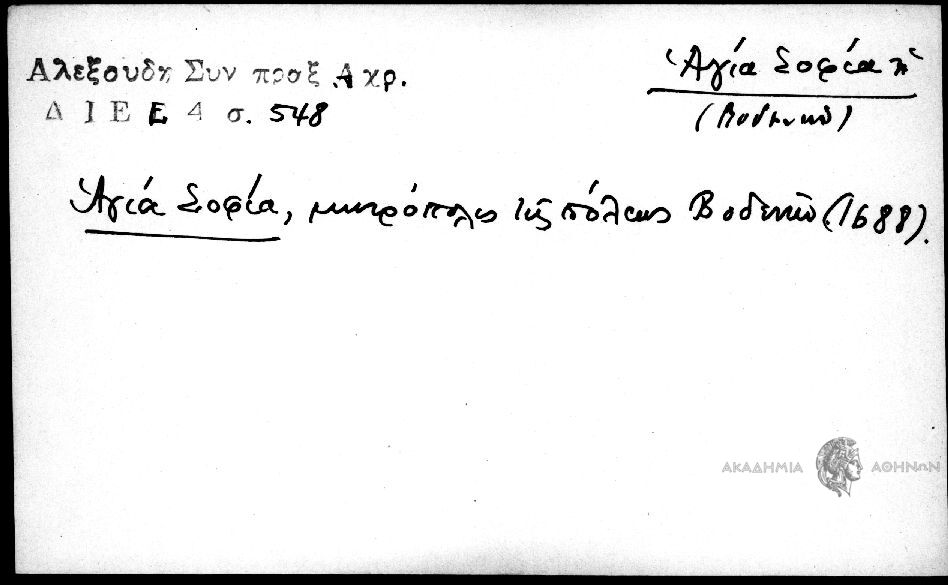 Αλεξουδη Συν πραξ Αχρ.
Δ Ι Ε Ε 4 σ. 548
Ἁγία Σοφία ἡ
(Βοδενῶν)
Ἁγιά Σοφία, μητρόπολις τῆς πόλεως Βοδενῶν (1688).
ΑΚΑΔΗΜΙΑ ΑΘΗΝΩΝ